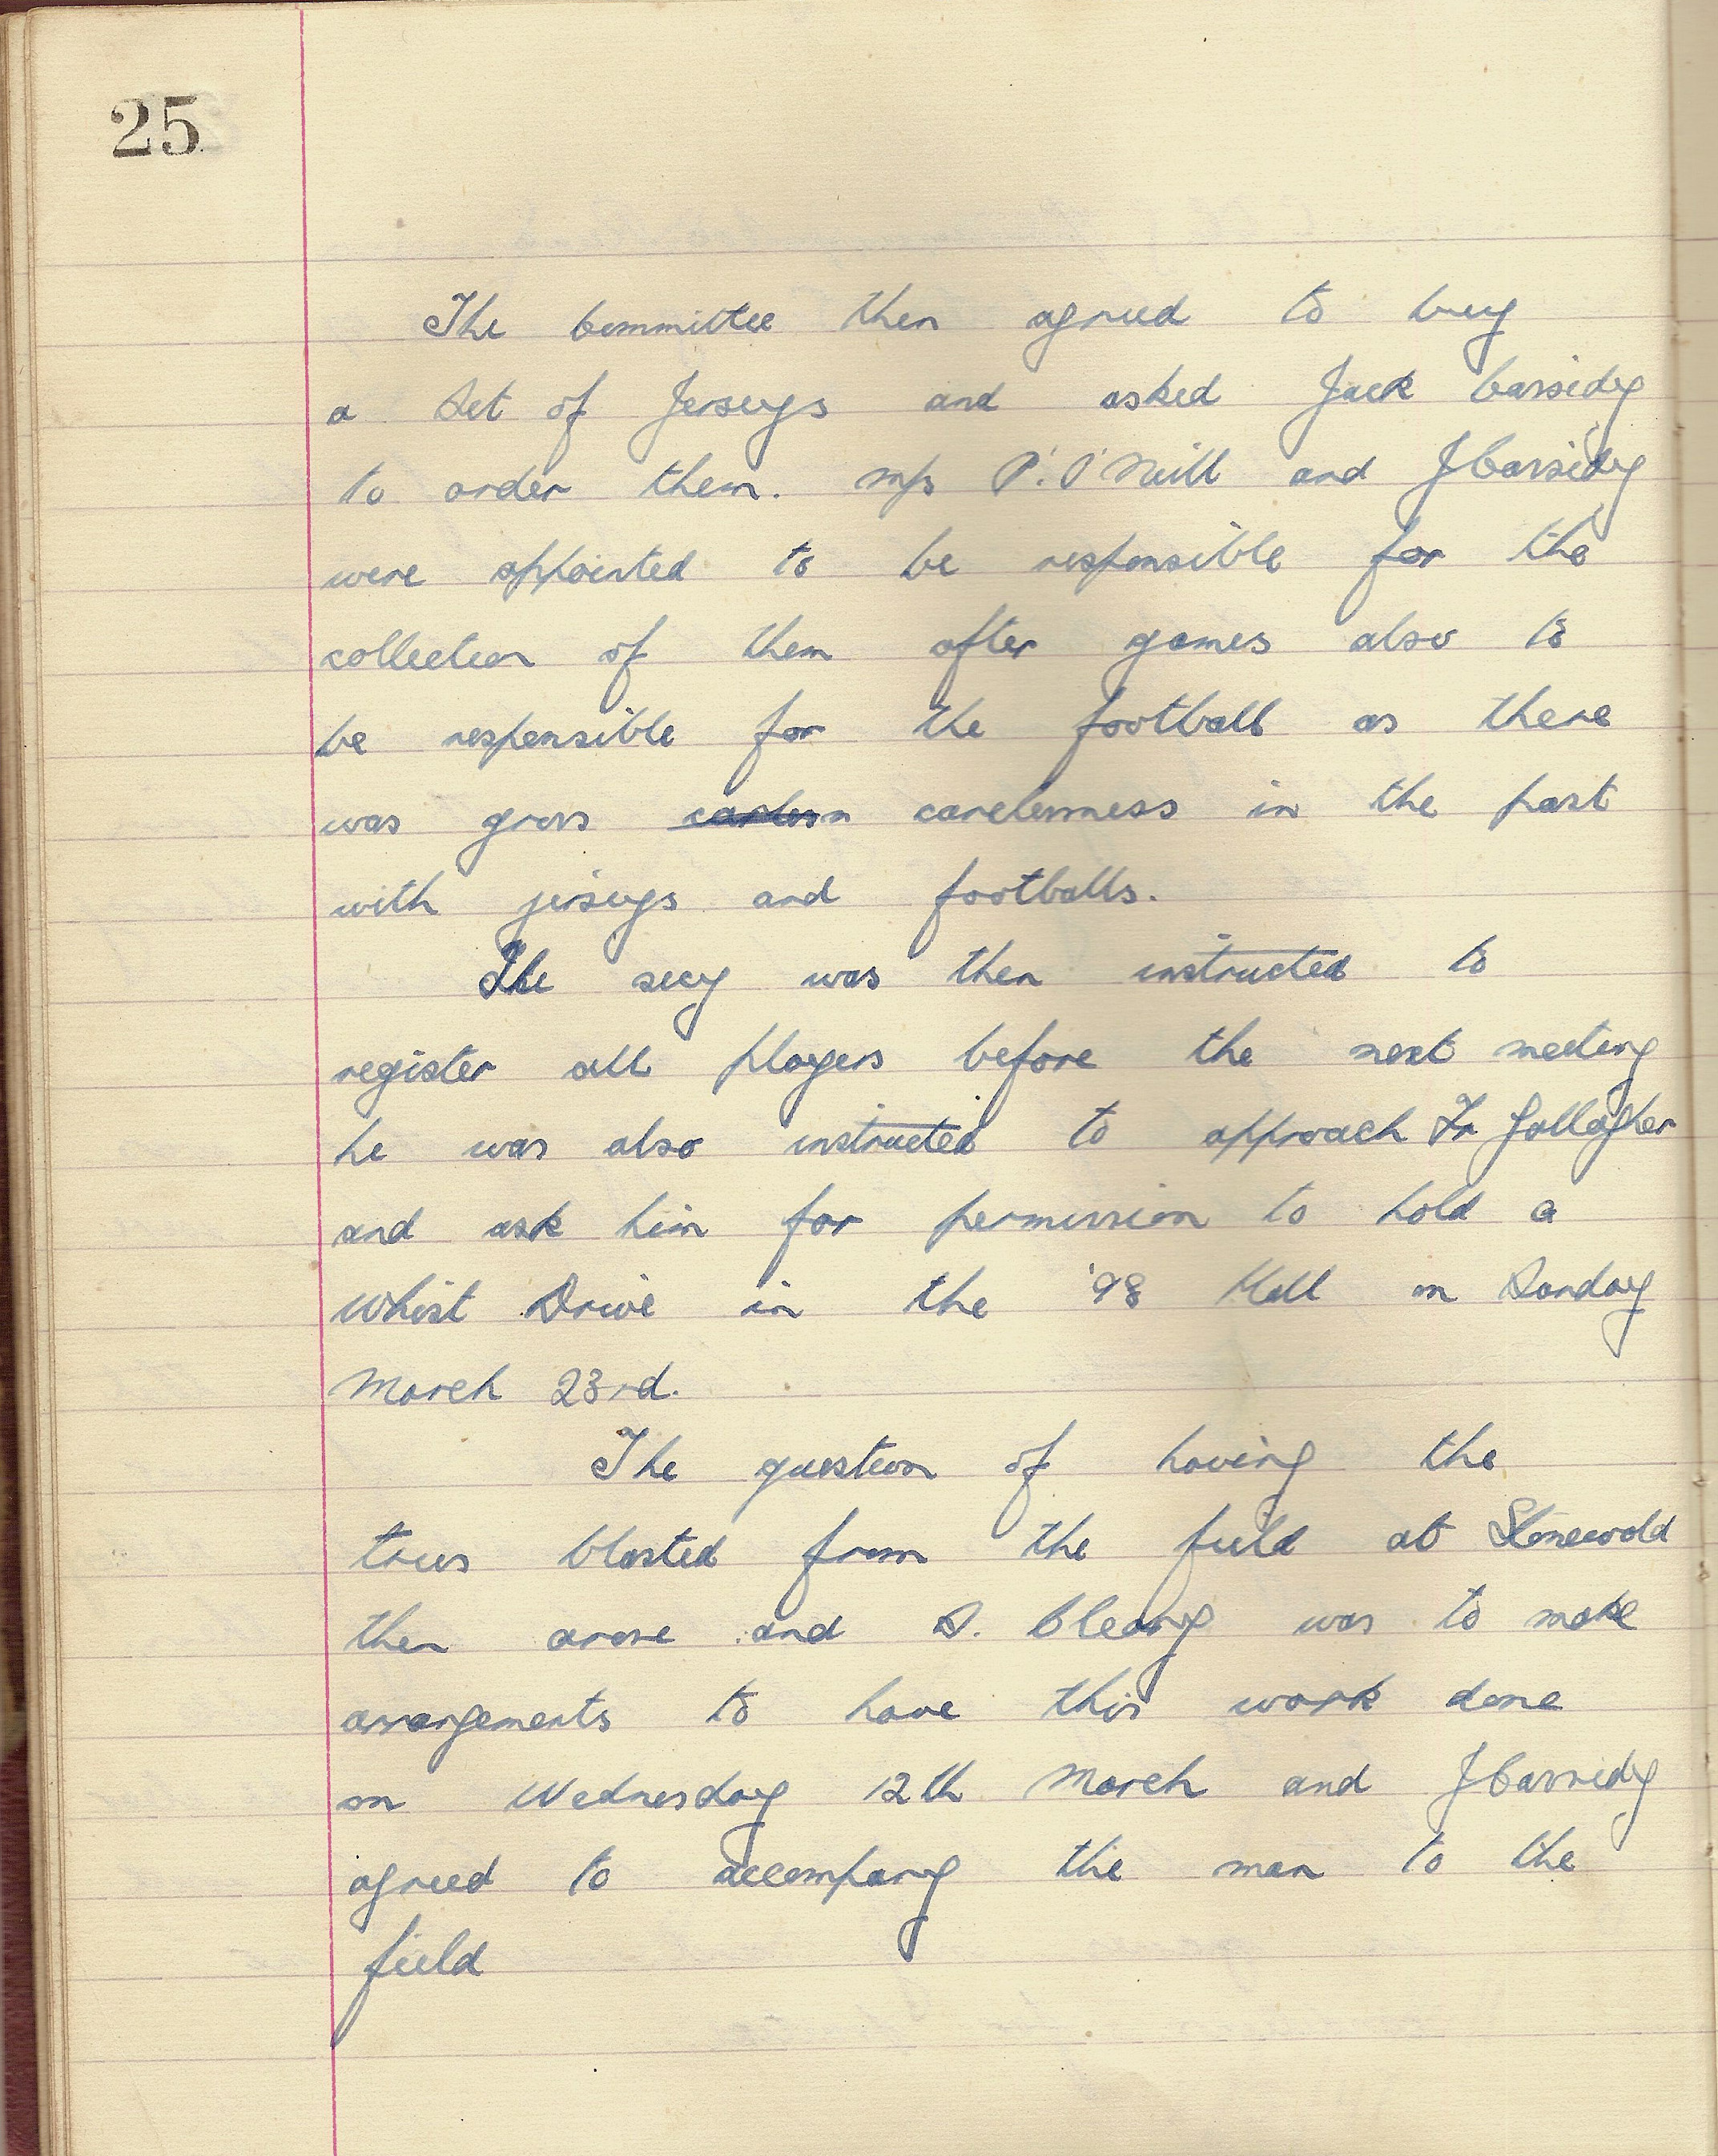 25
The Committee then agreed to buy
a Set of Jerseys and asked Jack Cassidy
to order them. Mrs P. O'Neill and J Cassidy
were appointed to be responsible for the
collection of them after games also to
be responsible for the football as there
was gross carelessness in the past
with jerseys and footballs.
The secy was then instructed to
register all players before the next meeting
he was also instructed to approach Fr Gallagher
and ask him for permission to hold a
Whist Drive in the '98 Hall on Sunday
March 23rd.
The question of having the
trees blasted from the field at Stonewold
then arose and S. Cleary was to make
arrangements to have this work done
on Wednesday 12th March and J Cassidy
agreed to accompany the man to the
field